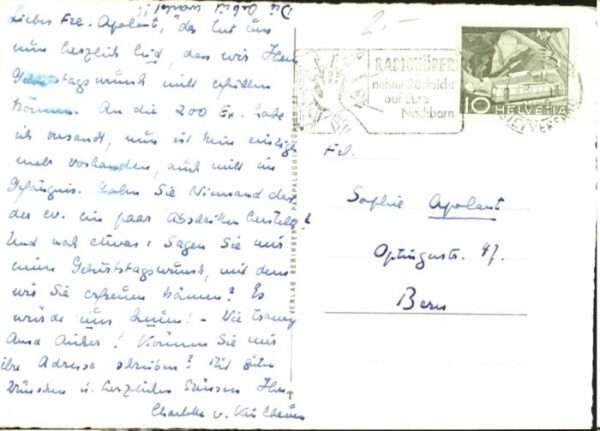 Liebes Frl. Apolant, das tut uns
nun herzlich leid, dass wir Ihren
Geburtstagswunsch nicht erfüllen
können. An die 200 Ex. habe
ich versandt, nun ist kein einziges
mehr vorhanden, auch nicht im
Gefängnis. Haben Sie Niemand der
der ev. ein paar
Und noch etwas: Sagen Sie mir
einen Geburtstagswunsch, mit dem
wir Sie erfreuen können? Es
würde uns freuen! -
Können Sie mir
ihre Adresse schreiben? Mit guten
Wünschen u. herzlichen Grüssen Ihre
Charlotte v.
2.-
RADIOHÖRER
nehmt Rücksicht
auf eure
Nachbarn
10 HELVETIA
Frl.
Sophie Apolant
Optingerstr. 47.
Bern
VERLAG BERINGER & PAMPALUCHI, ZÜRICH